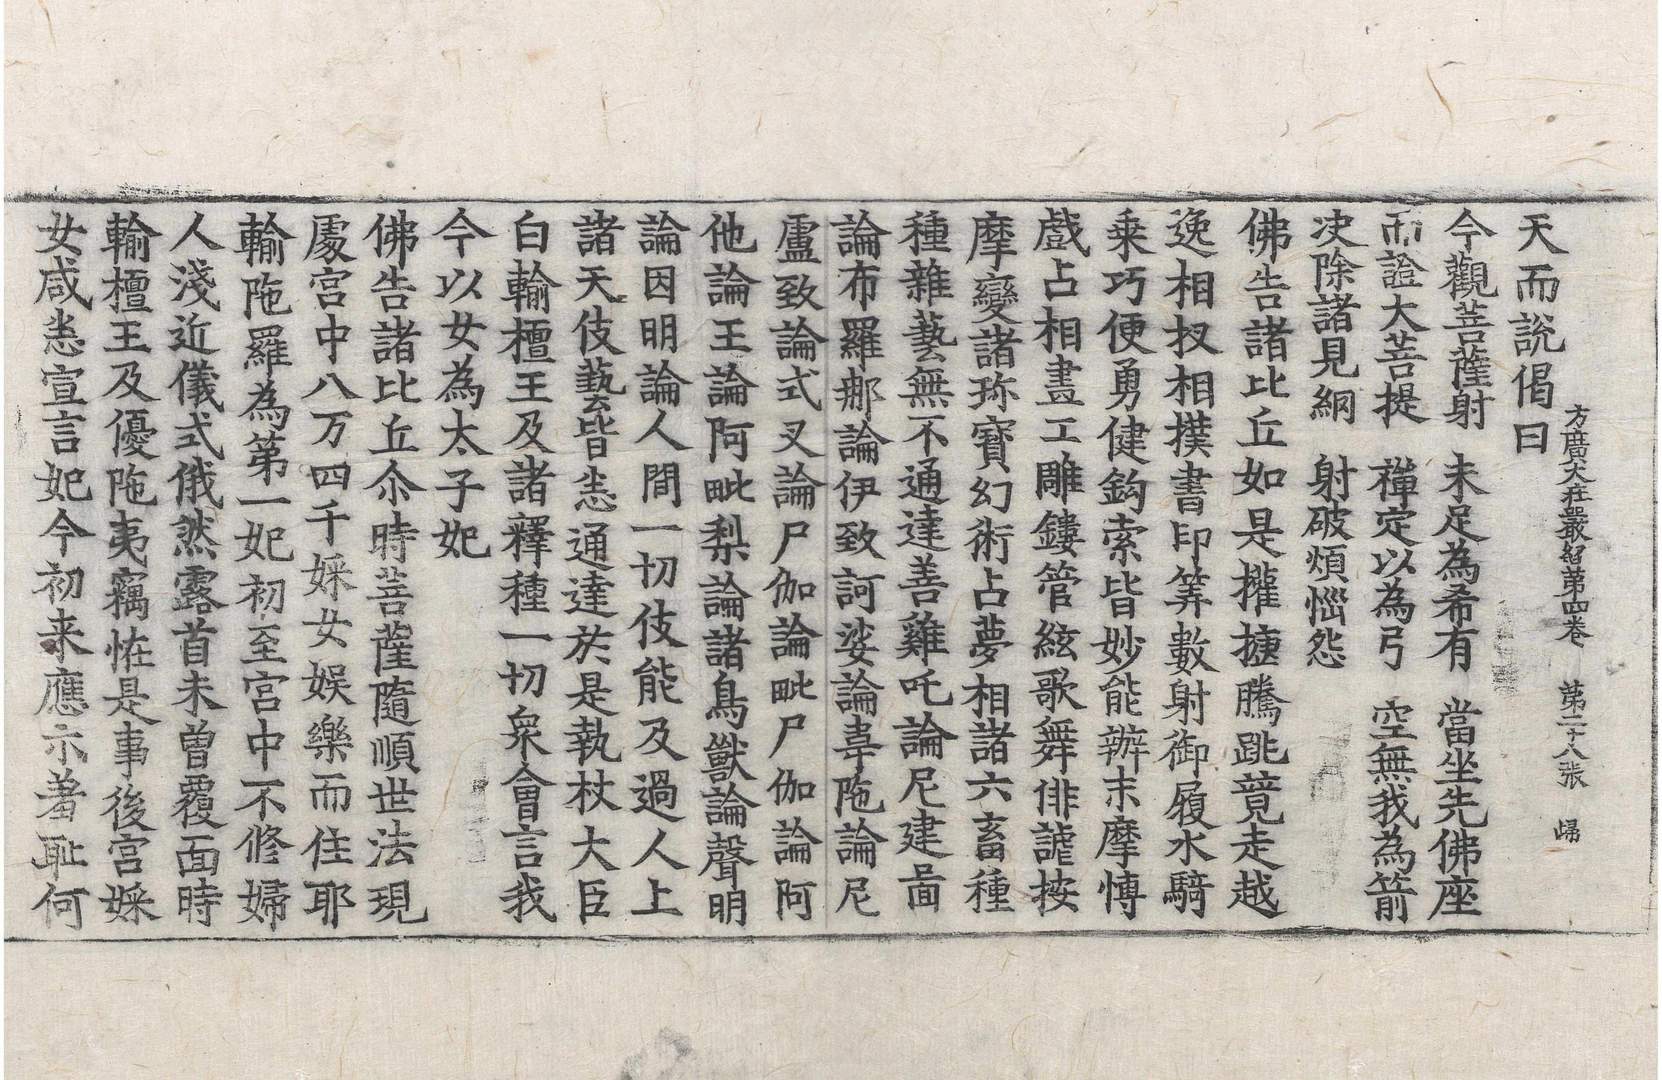 方廣大莊嚴經第四卷　第二十八張　歸
天而說偈曰
今觀菩薩射　未足為希有　當坐先佛座
而證大菩提　禪定以為弓　空無我為箭
决除諸見網　射破煩惱怨
佛告諸比丘如是攉揵騰跳競走越
逸相扠相撲書印筭數射御履水騎
乗巧便勇健鈎索皆妙能辦末摩愽
戲占相畫工雕鏤管絃歌舞俳謔按
摩變諸珎寶幻術占夢相諸六畜種
種雜藝無不通達善雞吒論尼建啚
論布羅那論伊致訶娑論韋陁論尼
盧致論式叉論尸伽論毗尸伽論阿
他論王論阿毗梨論諸鳥獸論聲明
論因明論人間一切伎能及過人上
諸天伎藝皆悉通達於是執杖大臣
白輸檀王及諸釋種一切衆會言我
今以女為太子妃
佛告諸比丘尒時菩薩隨順世法現
處宮中八万四千婇女娛樂而住耶
輸陁羅為第一妃初至宮中不修婦
人淺近儀式俄然露首未曾覆面時
輸檀王及優陁夷竊恠是事後宮婇
女咸悉宣言妃今初来應示羞恥何